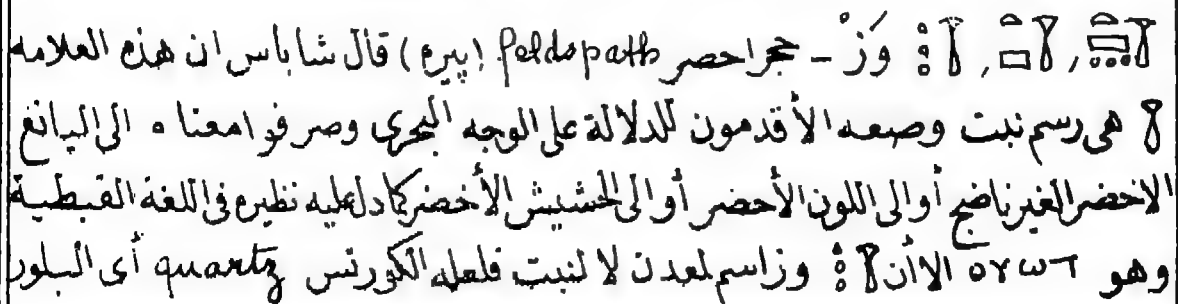 وَزْ – حجر احصر feldspath (پيره) قال شاباس ان هذه العلامه
هى رسم نبت وصعه الأقدمون للدلالة على الوجه البحرى وصرفوا معناه الى اليانع
الاخضر الغير ناضج أو الى اللون الأحضر أو الى الحشيش الأخضر كما دل عليه نظيره فى اللغة القبطية
وهو ⲟⲩⲱⲧ الا أن وز اسم لمعدن لا لنبت فلعله الكورتس quartz أى البلور